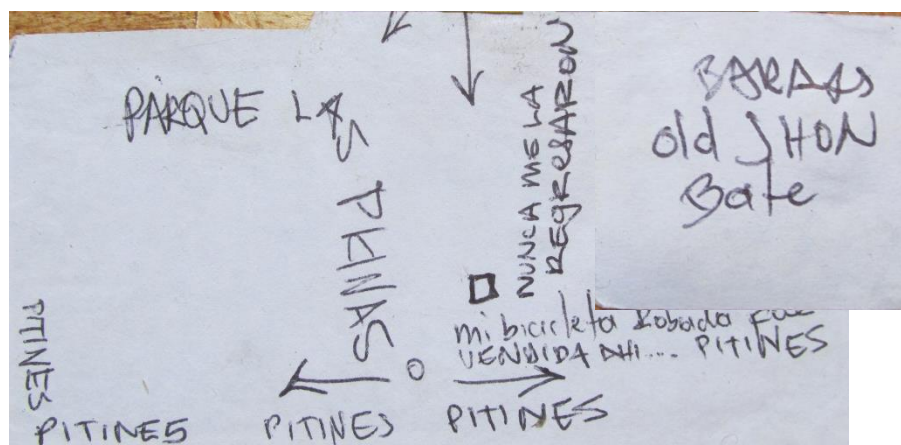 PARQUE LAS PLINAS
NUNCA ME LA
REGRESARON
old JHON
Bate
mi bicicleta Robada FUE
VENDIDA AHI.... PITINES
PITINES
PITINES PITINES PITINES